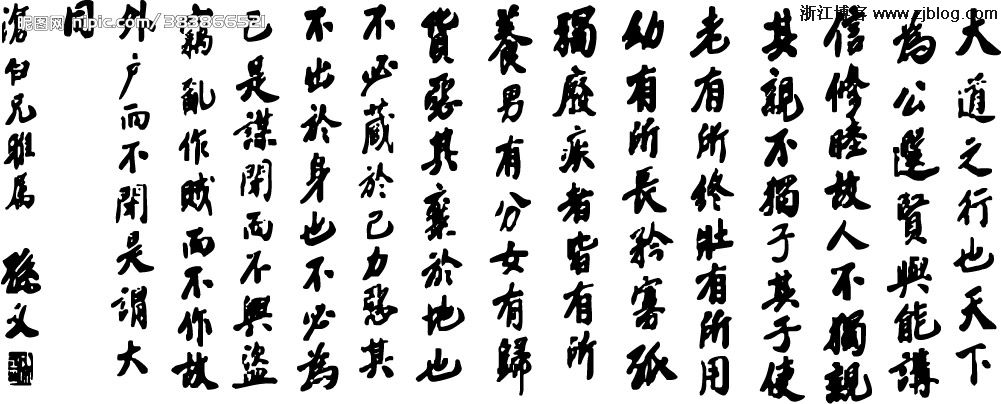 大道之行也天下
為公選賢與能講
信修睦故人不獨親
其親不獨子其子使
老有所終壯有所用
幼有所長矜寡孤
獨廢疾者皆有所
養男有分女有歸
貨惡其棄於地也
不必藏於己力惡其
不出於身也不必為
己是謀閉而不興盜
竊亂作賊而不作故
外户而不閉是謂大
同
滄白兄雅属 孫文
昵图网 nipic.com/383866521
浙江博客 www.zjblog.com